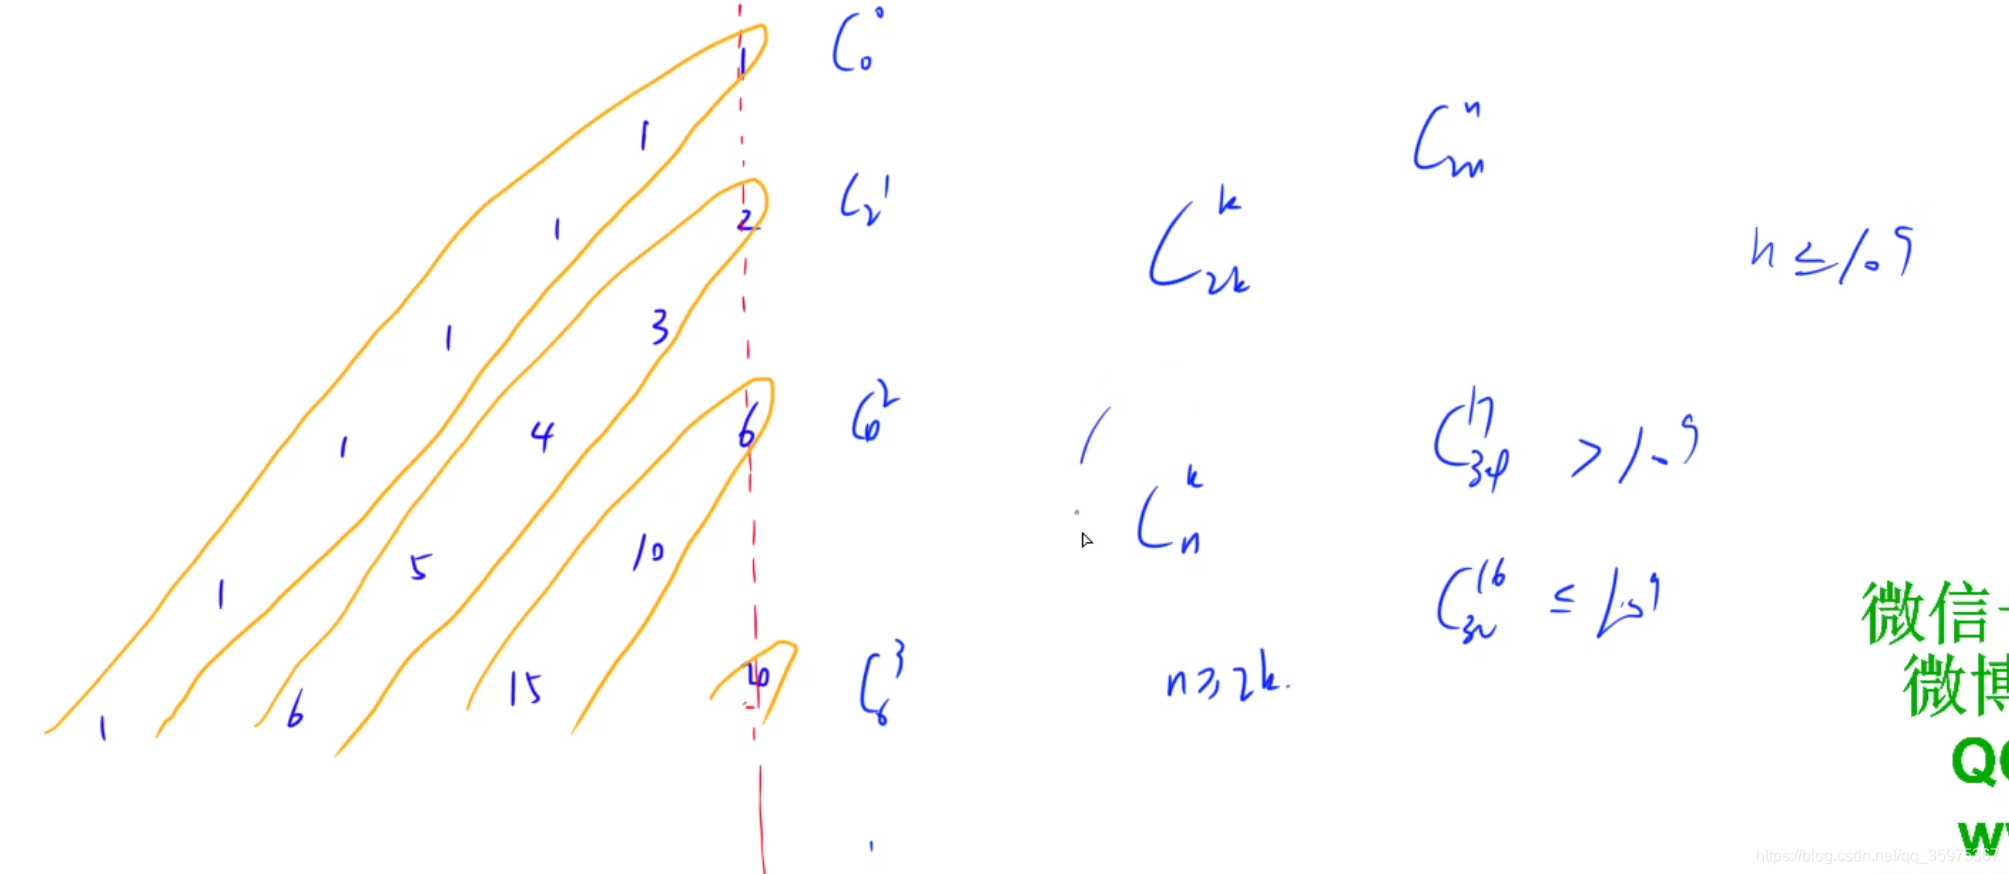 1 C₀⁰
1 Cₘⁿ
1 2 C₂¹
C₂ₖᵏ n ≤ 10⁹
1 3
1 4 6 C²
C₃₄¹⁷ > 10⁹
Cₙᵏ
1 5 10
C₃₂¹⁶ ≤ 10⁹
1 6 15 C₆³
n ≥ 2k.
微信
微博
https://blog.csdn.net/qq_35975367